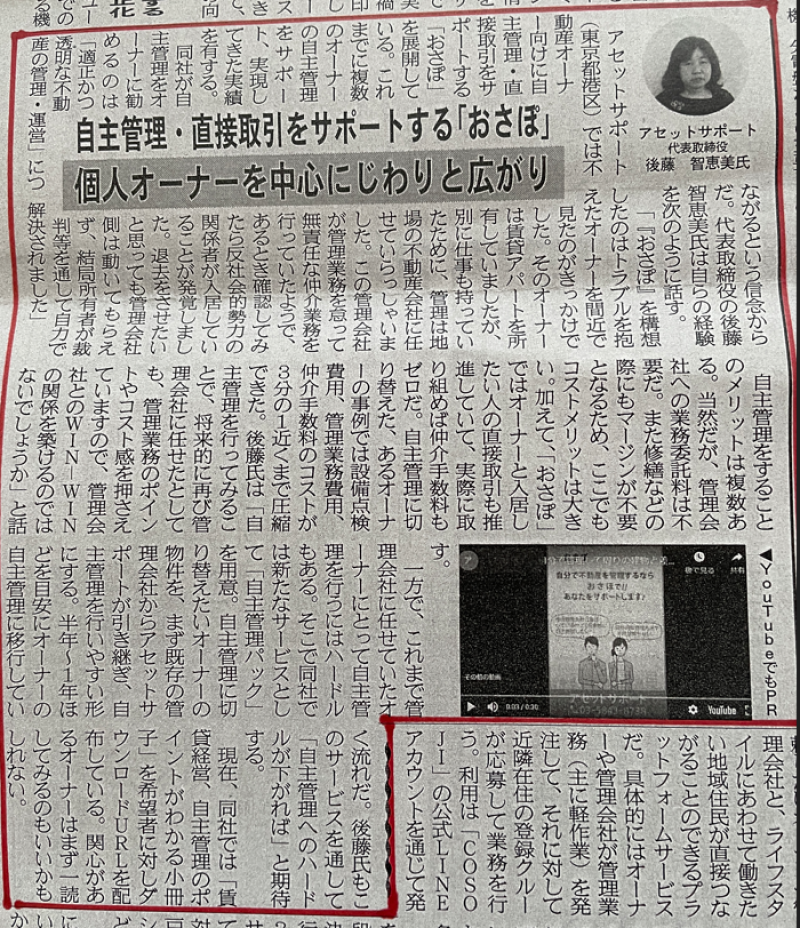 自主管理・直接取引をサポートする「おさぽ」
個人オーナーを中心にじわりと広がり
アセットサポート
代表取締役
後藤　智恵美氏
アセットサポート
（東京都港区）では不
動産オーナ
ー向けに自
主管理・直
接取引をサ
ポートする
「おさぽ」
を展開して
いる。これ
までに複数
のオーナー
の自主管理
をサポー
ト、実現し
てきた実績
を有する。
同社が自
主管理をオ
ーナーに勧
めるのは
「適正かつ
透明な不動
産の管理・運営」につ
ながるという信念から
だ。代表取締役の後藤
智恵美氏は自らの経験
を次のように話す。
「『おさぽ』を構想
したのはトラブルを抱
えたオーナーを間近で
見たのがきっかけで
した。そのオーナー
は賃貸アパートを所
有していましたが、
別に仕事も持ってい
たために、管理は地
場の不動産会社に任
せていらっしゃいま
した。この管理会社
が管理業務を怠って
無責任な仲介業務を
行っていたようで、
あるとき確認してみ
たら反社会的勢力の
関係者が入居してい
ることが発覚しまし
た。退去をさせたい
と思っても管理会社
側は動いてもらえ
ず、結局所有者が裁
判等を通して自力で
解決されました」
自主管理をすること
のメリットは複数あ
る。当然だが、管理会
社への業務委託料は不
要だ。また修繕などの
際にもマージンが不要
となるため、ここでも
コストメリットは大き
い。加えて、「おさぽ」
ではオーナーと入居し
たい人の直接取引も推
進していて、実際に取
り組めば仲介手数料も
ゼロだ。自主管理に切
り替えた、あるオーナ
ーの事例では設備点検
費用、管理業務費用、
仲介手数料のコストが
3分の1近くまで圧縮
できた。後藤氏は「自
主管理を行ってみるこ
とで、将来的に再び管
理会社に任せたとして
も、管理業務のポイン
トやコスト感を押さえ
ていますので、管理会
社とのWIN―WIN
の関係を築けるのでは
ないでしょうか」と話
す。
▲YouTubeでもPR
後で見る
共有
自分で不動産を管理するなら
おさぽで!!
あなたをサポートします!
その他の動画
アセットサポート
0:03 / 0:30
YouTube
一方で、これまで管
理会社に任せていたオ
ーナーにとって自主管
理を行うにはハードル
もある。そこで同社で
は新たなサービスとし
て「自主管理パック」
を用意。自主管理に切
り替えたいオーナーの
物件を、まず既存の管
理会社からアセットサ
ポートが引き継ぎ、自
主管理を行いやすい形
にする。半年〜1年ほ
どを目安にオーナーの
自主管理に移行してい
く流れだ。後藤氏もこ
のサービスを通して
「自主管理へのハード
ルが下がれば」と期待
する。
現在、同社では「賃
貸経営、自主管理のポ
イントがわかる小冊
子」を希望者に対しダ
ウンロードURLを配
布している。関心があ
るオーナーはまず一読
してみるのもいいかも
しれない。
理会社と、ライフスタ
イルにあわせて働きた
い地域住民が直接つな
がることのできるプラ
ットフォームサービス
だ。具体的にはオーナ
ーや管理会社が管理業
務（主に軽作業）を発
注して、それに対して
近隣在住の登録クルー
が応募して業務を行
う。利用は「COSO
JI」の公式LINE
アカウントを通じて発